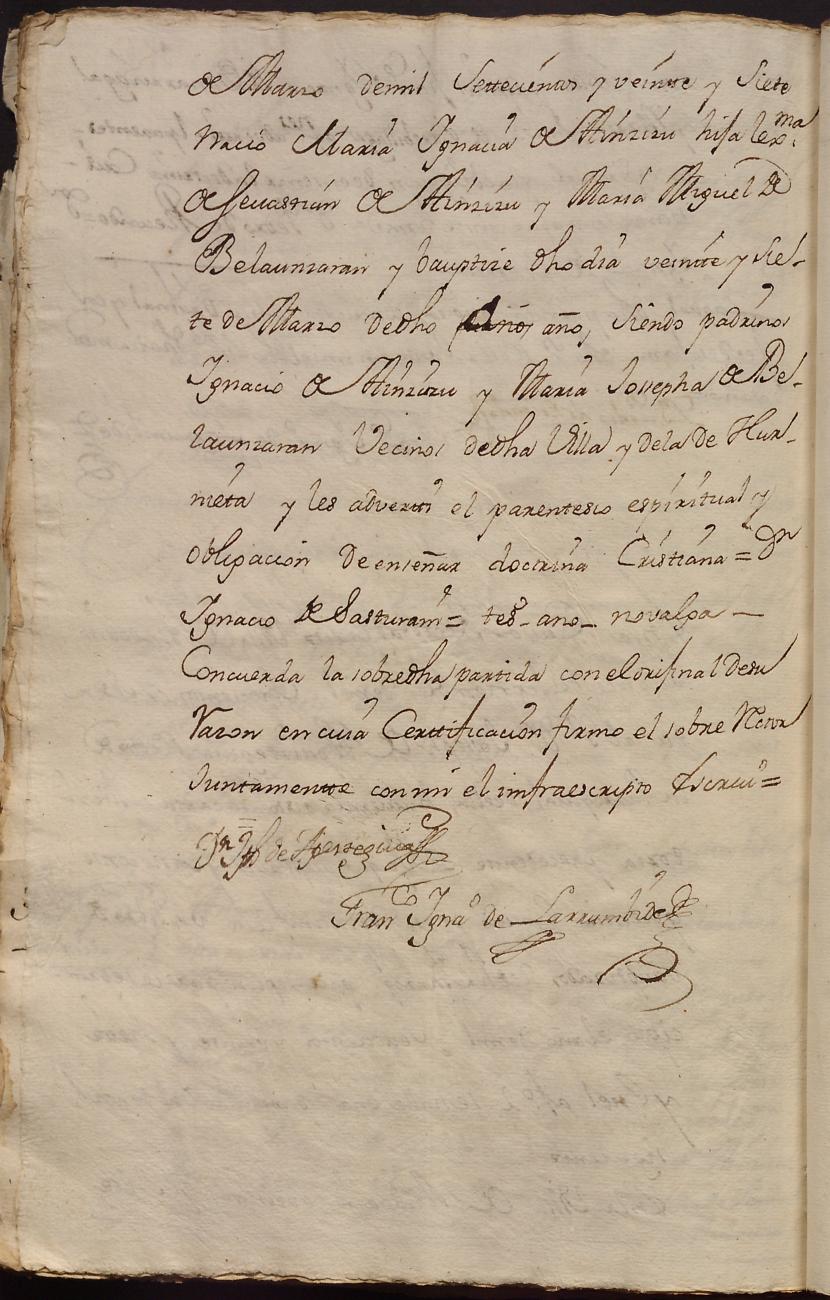 de Marzo demil Settecientos y veinte y Siete
nacio Maria Ignacia de Atinzizu hija lexma.
de Sevastian de Atinzizu y Maria Miguel de
Belaunzaran y bauptize dho dia veinte y sie-
te de Marzo dedho año, siendo padrinos
Ignacio de Atinzizu y Maria Josepha de Be-
launzaran Vecinos dedha Villa y dela de Hur-
nieta y les adverti el parentesco espiritual y
obligacion de enseñar doctrina Cristiana = Dn
Ignacio de Sasturain = tesdo - ano - no valga —
Concuerda la sobredha partida con el orijinal desu
razon en cuia Certtificacion firmo el sobre Rector
Juntamentte con mi el infraescripto Escriu =
Dn Jph de
Franco Ignao de Larrumbide